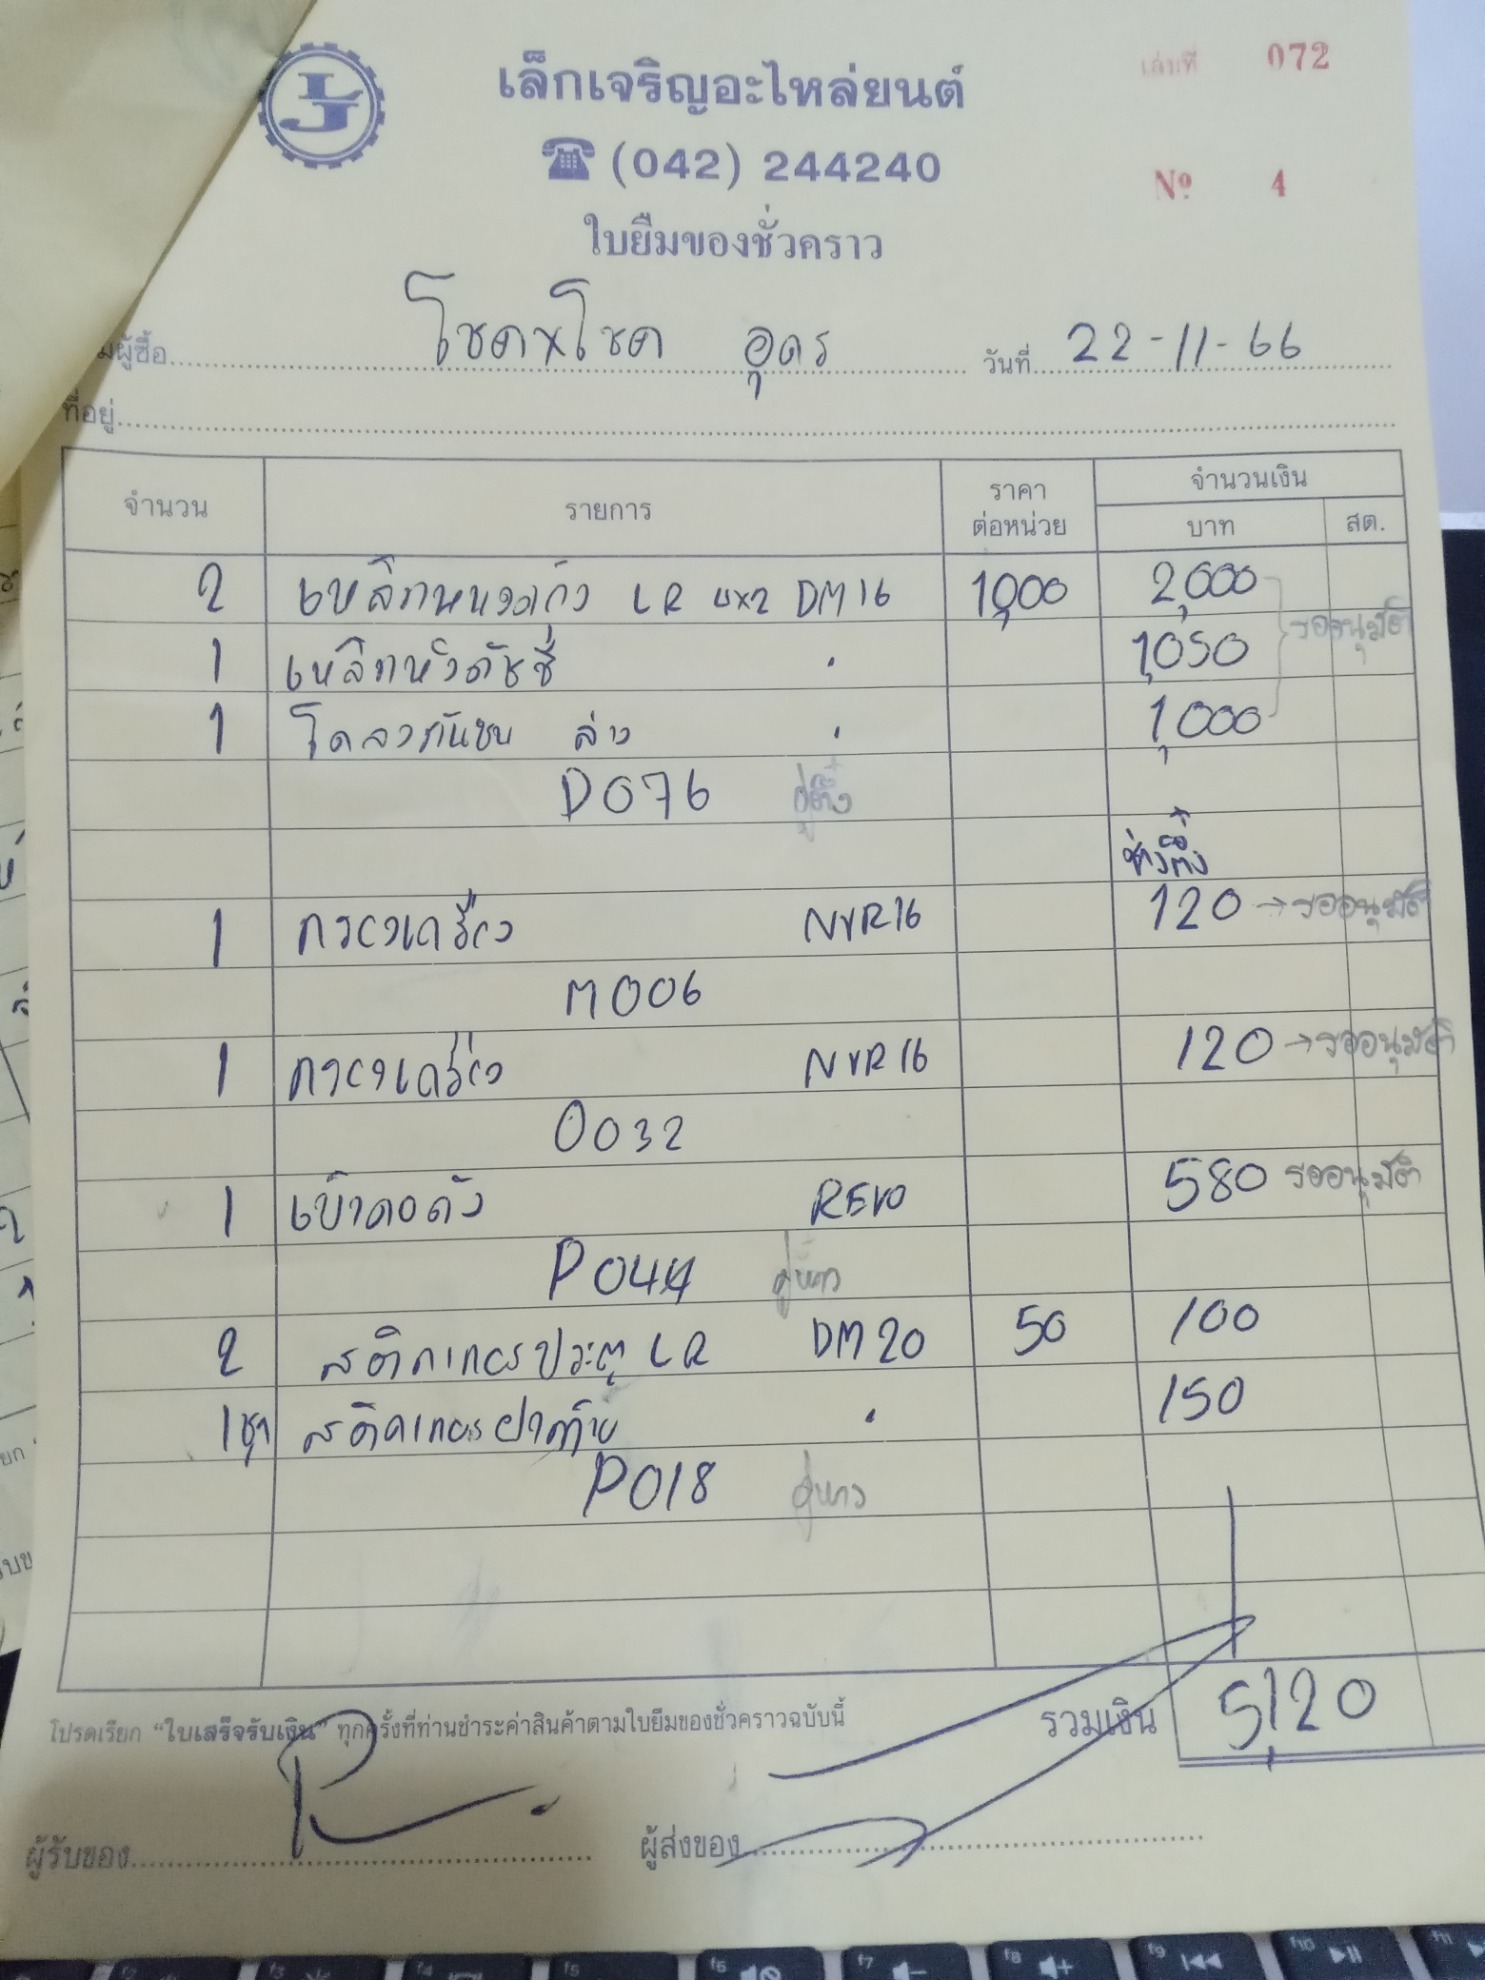 เล่มที่ 072
เล็กเจริญอะไหล่ยนต์
(042) 244240
Nº 4
ใบยืมของชั่วคราว
ผู้ซื้อ โชคxโชค อุดร วันที่ 22-11-66
ที่อยู่
จำนวน รายการ ราคาต่อหน่วย จำนวนเงิน
บาท สต.
2 LR 4x2 DM16 1,000 2,000
รออนุมัติ
1 1,050
1 โครงกันชน ล่าง 1,000
D076
120 รออนุมัติ
1 กรองเครื่อง NVR16
M006
1 กรองเครื่อง NVR16 120 รออนุมัติ
O032
1 เบ้าคอถัง REVO 580 รออนุมัติ
P044
2 สติกเกอร์ประตู LR DM20 50 100
1 ชุด สติกเกอร์ฝาท้าย 150
P018
โปรดเรียก "ใบเสร็จรับเงิน" ทุกครั้งที่ท่านชำระค่าสินค้าตามใบยืมของชั่วคราวฉบับนี้ รวมเงิน 5,120
ผู้รับของ ผู้ส่งของ
f5 f6 f7 f8 f9 f10 f11